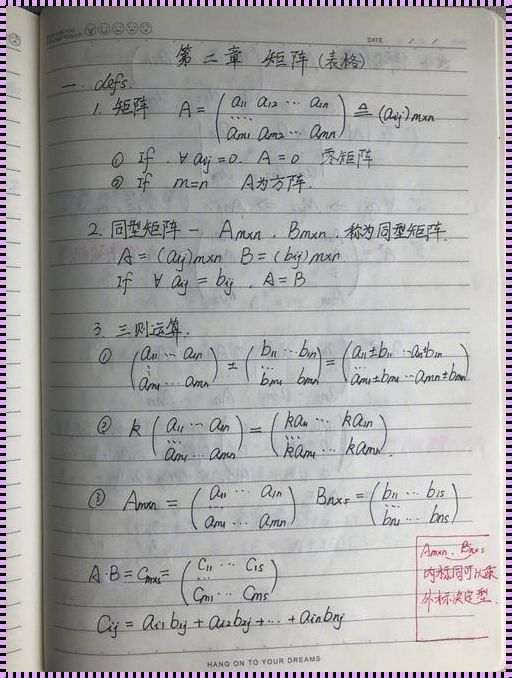 DATE
第二章 矩阵 (表格)
一. defs.
1. 矩阵 A = ( a₁₁ a₁₂ ⋯ a₁ₙ
⋯⋯
aₘ₁ aₘ₂ ⋯ aₘₙ ) ≜ (aᵢⱼ)ₘₓₙ
① If . ∀ aᵢⱼ=0. A=0 零矩阵
② If m=n A为方阵.
2. 同型矩阵 — Aₘₓₙ , Bₘₓₙ . 称为同型矩阵.
A = (aᵢⱼ)ₘₓₙ B = (bᵢⱼ)ₘₓₙ
If ∀ aᵢⱼ = bᵢⱼ , A = B
3. 三则运算.
① ( a₁₁ ⋯ a₁ₙ
⋮
aₘ₁ ⋯ aₘₙ ) ± ( b₁₁ ⋯ b₁ₙ
⋯
bₘ₁ bₘₙ ) = ( a₁₁±b₁₁ ⋯ a₁ₙ±b₁ₙ
⋯
aₘ₁±bₘ₁ ⋯ aₘₙ±bₘₙ )
② k ( a₁₁ ⋯ a₁ₙ
⋯
aₘ₁ ⋯ aₘₙ ) = ( ka₁₁ ⋯ ka₁ₙ
⋯
kaₘ₁ ⋯ kaₘₙ ).
③ Aₘₓₙ = ( a₁₁ ⋯ a₁ₙ
⋯
aₘ₁ ⋯ aₘₙ ) Bₙₓₛ = ( b₁₁ ⋯ b₁ₛ
⋯
bₙ₁ ⋯ bₙₛ )
A·B = Cₘₓₛ = ( C₁₁ ⋯ C₁ₛ
⋯
Cₘ₁ ⋯ Cₘₛ )
Cᵢⱼ = aᵢ₁b₁ⱼ + aᵢ₂b₂ⱼ + ⋯ + aᵢₙbₙⱼ
Aₘₓₙ . Bₙₓₛ
内标同可以乘
外标决定型.
HANG ON TO YOUR DREAMS